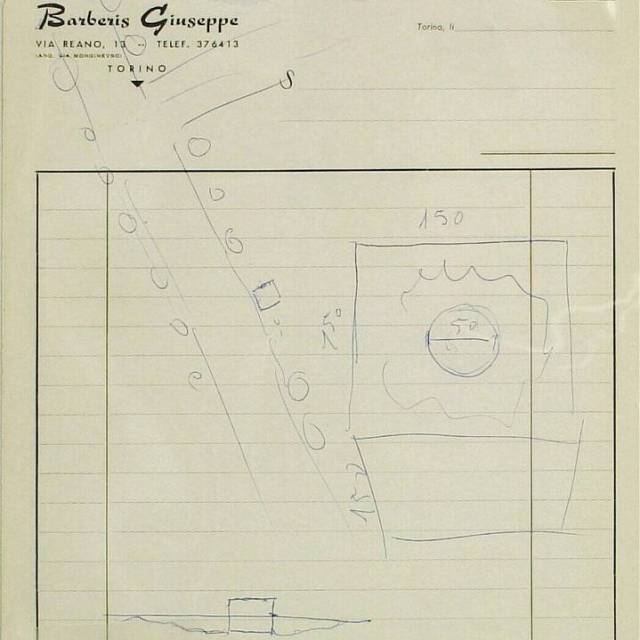 Barberis Giuseppe
Torino, li
VIA REANO, 13 — TELEF. 376413
(ANG. VIA MONGINEVRO)
TORINO
S
150
150
50
150